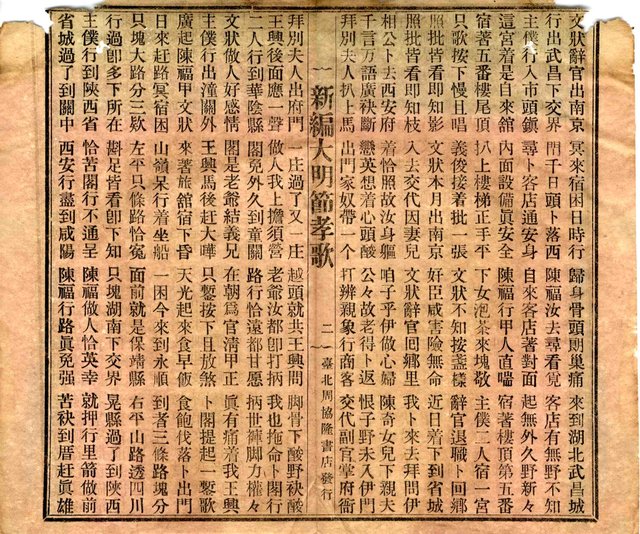 文狀辭官出南京　冥來宿困日時行　歸身骨頭則巢痛　來到湖北武昌城
行出武昌下交界　閂千日頭卜落西　陳福汝去尋看寬　客店有無野不知
主僕行入市頭鎮　尋卜客店通安身　自來客店著對面　起無外久野新々
這宮着是自來舘　內面設備眞安全　陳福行甲人直喘　宿著樓頂第五番
宿著五番樓尾頂　扒上樓梯正手平　下女泡茶來塊敬　主僕二人宿一宮
只歌按下慢且唱　義俊接着批一張　文狀不知按盞樣　辭官退職卜回鄉
照批皆看即知影　文狀本月出南京　奸臣咸害險無命　近日着下到省城
照批皆看即知枝　入去交代因妻兒　文狀辭官回鄉里　我卜來去拜問伊
相公卜去西安府　着恰照故汝身軀　咱子乎伊做心婦　陳奇女兒下親夫
千言萬語廣袂斷　戀英想着心頭酸　公々故老得卜返　恨子野未入伊門
拜別夫人扒上馬　出門家奴帶一个　打辨親象行商客　交代副官掌府衙
一　新編大明節孝歌　二　臺北周協隆書店發行
拜別夫人出府門　一庄過了又一庄　越頭就共王興問　脚骨下酸野袂酸
王興後面應一聲　做人我上擔須營　老爺汝都卽打柄　我也拖命卜閣行
二人行到華陰縣　閣免外久到童關　路行恰遠都甘愿　抦世褲脚力權々
文狀做人好感情　閣是老爺結義兄　在朝為官淸甲正　眞有痛着我王興
主僕行出潼關外　王興馬後赶大嘩　只鏨按下且放煞　卜閣提起一鏨歌
廣起陳福甲文狀　來著旅舘宿下昏　天光起來食早飯　食飽伐落卜出門
日來赶路冥宿困　山嶺呆行着坐船　一困今來到永順　到者三條路塊分
只塊大路分三欵　左平只條路恰寃　面前就是保靖縣　右平山路透四川
行過卽多下所在　斟足皆看卽下知　只塊湖南下交界　晃縣過了到陝西
主僕行到陝西省　恰苦閣行不通呈　陳福做人恰英幸　就押行里箭做前
省城過了到關中　西安行盡到咸陽　陳福行路眞免强　苦袂到厝赶眞雄